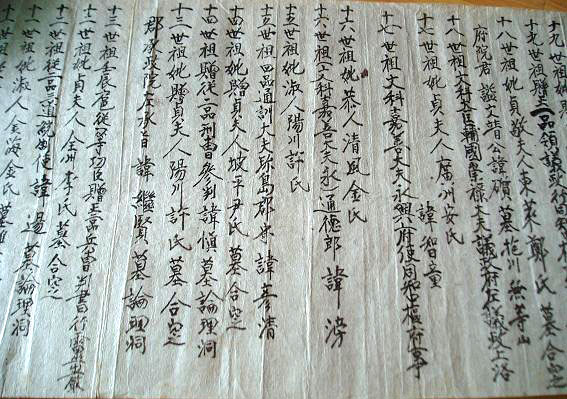 十九世祖妣
十九世祖贈正一品領議政行
十八世祖妣貞敬夫人東萊鄭氏墓合窆
府院君 諡文普公諱磧 墓抱川無等山
十八世祖文科大匡輔國崇祿大夫議政府左議政上洛
十七世祖妣貞夫人廣州安氏
十七世祖文科嘉善大夫永興府使同知中樞府事 諱智童
十六世祖妣恭人清風金氏
十六世祖文科嘉善大夫永 通德郎 諱滂
十五世祖妣淑人陽川許氏
十五世祖四品通訓大夫珍島郡守 諱壽清
十四世祖妣贈貞夫人坡平尹氏墓合窆
十四世祖贈從二品刑曹參判諱恒墓論理洞
十三世祖妣贈貞夫人陽川許氏墓合窆
郡 承政院左承旨 諱繼賢墓論理洞
十三世祖壬辰宣從一等功臣贈正二品兵曹判書行
十二世祖妣貞夫人全州李氏墓合窆
十二世祖從二品三道統制使諱 墓論理洞
十一世祖妣淑人金海金氏墓